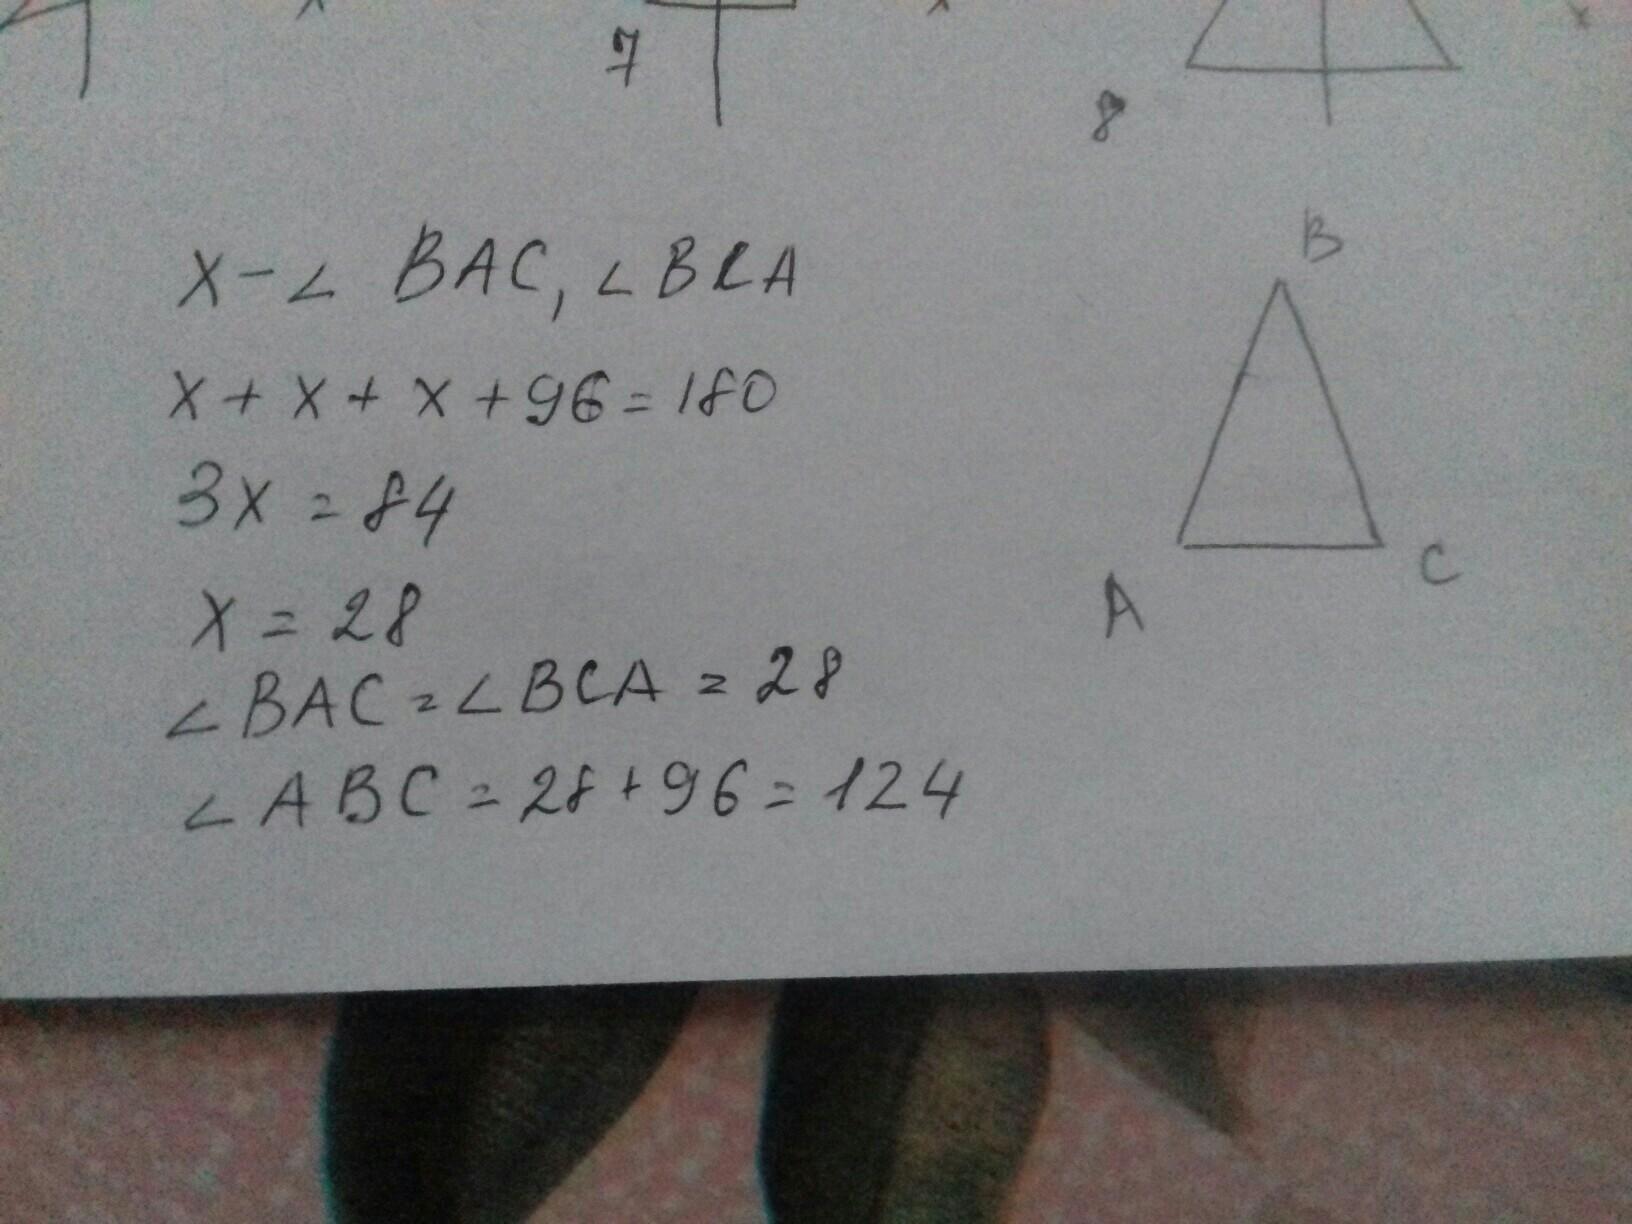 7
8
X - ∠ BAC, ∠ BCA
X + X + X + 96 = 180
3X = 84
X = 28
∠ BAC = ∠ BCA = 28
∠ ABC = 28 + 96 = 124
B
A
C